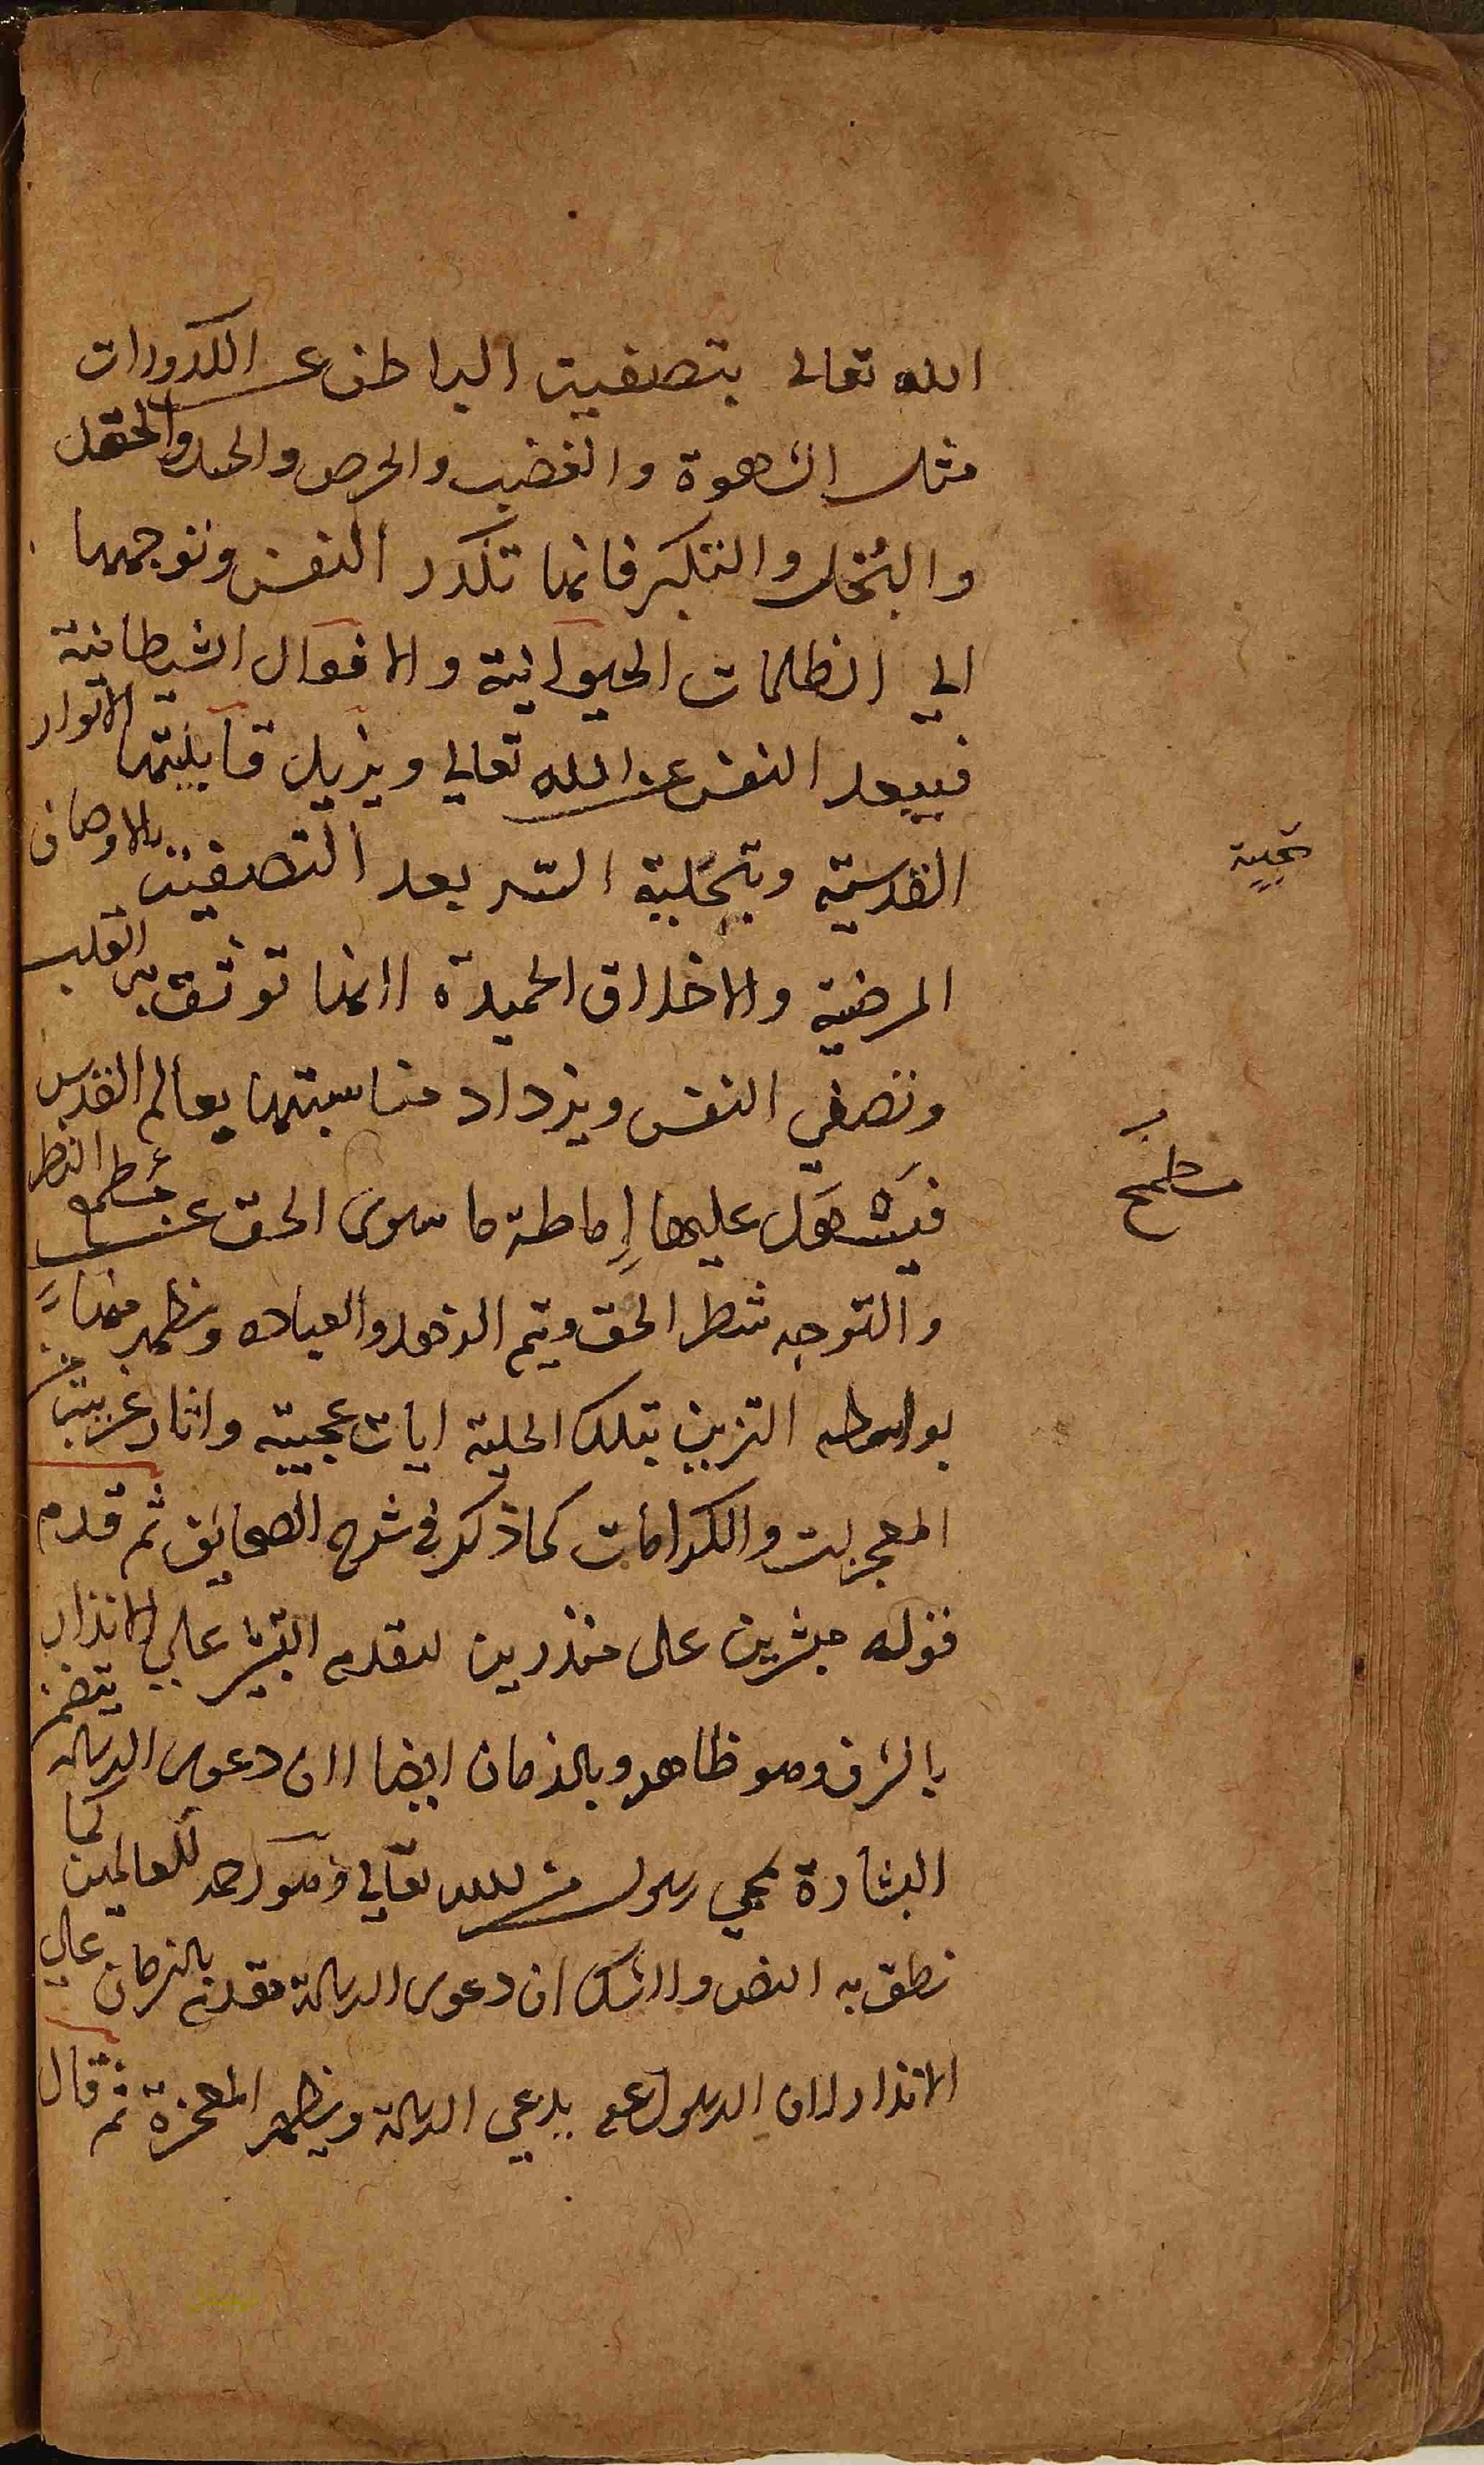 الله تعالى بتصفية الباطن عن الكدورات
مثل الشهوة والغضب والحرص والحسد والحقد
والبُخل والتكبر فانها تكدر النفس وتوجهها
الي الظلمات الحيوانية والافعال الشيطانية
فيبعد النفس عن الله تعالي ويزيل قابليتها الانوار
القدسية وبتحلية السر بعد التصفية بالاوصاف
تحلية
المرضية والاخلاق الحميدة لانها القلب
وتصفي النفس ويزداد مناسبتها بعالم القدس
فيسهل عليها إماطة ما سوى الحق عن مطمح النظر
مطمَح
والتوجه شطر الحق ويتم الزهد والعباده ويظهر منها
بواسطه التزين بتلك الحلية ايات عجيبة واثار غريبة من
المعجزات والكرامات كما ذكر في شرح الصحايف ثم قدم
قوله مبشرين على منذرين لتقدم التبشير علي الانذار
بالشرف وهو ظاهر وبالزمان ايضا لان دعوى الرسالة يتضمن
البشارة بمجي رسول من الله تعالي وهو رحمة للعالمين كما
نطق به النص ولا شك ان دعوى الرسالة مقدم بالزمان علي
الانذار لان الرسول عم يدعي الرسالة ويظهر المعجزة ثم قال